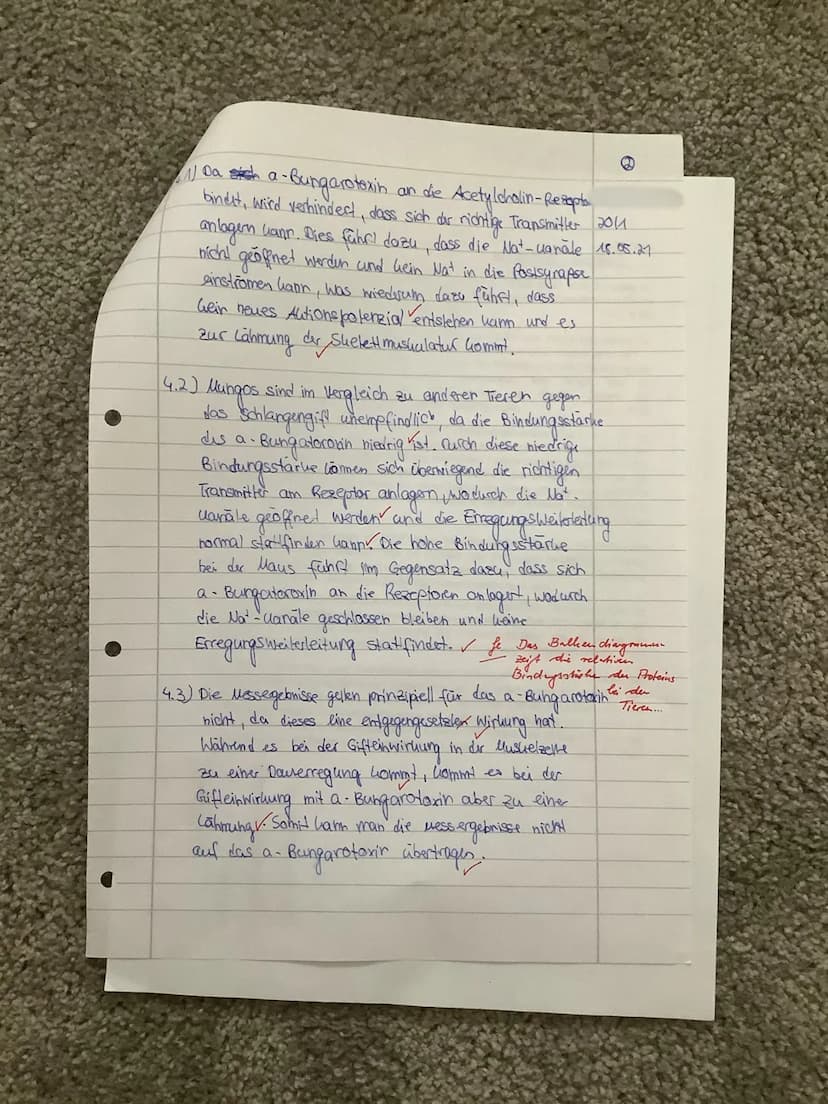 ②
.1) Da a-Bungarotoxin an die Acetylcholin-Rezepto
bindet, wird verhindert, dass sich der richtige Transmitter
2011
anlagern kann. Dies führt dazu, dass die Na⁺-Kanäle
18.05.21
nicht geöffnet werden und kein Na⁺ in die Postsynapse
einströmen kann, was wiedrum dazu führt, dass
kein neues Aktionspotenzial entstehen kann und es
zur Lähmung der Skelettmuskulatur kommt.
4.2) Mungos sind im Vergleich zu anderen Tieren gegen
das Schlangengift unempfindlich, da die Bindungsstärke
des a-Bungatoroxin niedrig ist. Durch diese niedrige
Bindungsstärke können sich überwiegend die richtigen
Transmitter am Rezeptor anlagern, wodurch die Na⁺-
Kanäle geöffnet werden und die Erregungsweiterleitung
normal stattfinden kann. Die hohe Bindungsstärke
bei der Maus führt im Gegensatz dazu, dass sich
a-Bungatoroxin an die Rezeptoren anlagert, wodurch
die Na⁺-Kanäle geschlossen bleiben und keine
Erregungsweiterleitung stattfindet.
Das Balkendiagramm
zeigt die relativen
Bindungsstärke des Proteins
bei den
Tieren...
4.3) Die Messergebnisse gelten prinzipiell für das a-Bungarotoxin
nicht, da dieses eine entgegengesetzte Wirkung hat.
Während es bei der Gifteinwirkung in der Muskelzelle
zu einer Dauererregung kommt, kommt es bei der
Gifteinwirkung mit a-Bungarotoxin aber zu einer
Lähmung. Somit kann man die Messergebnisse nicht
auf das a-Bungarotoxin übertragen.